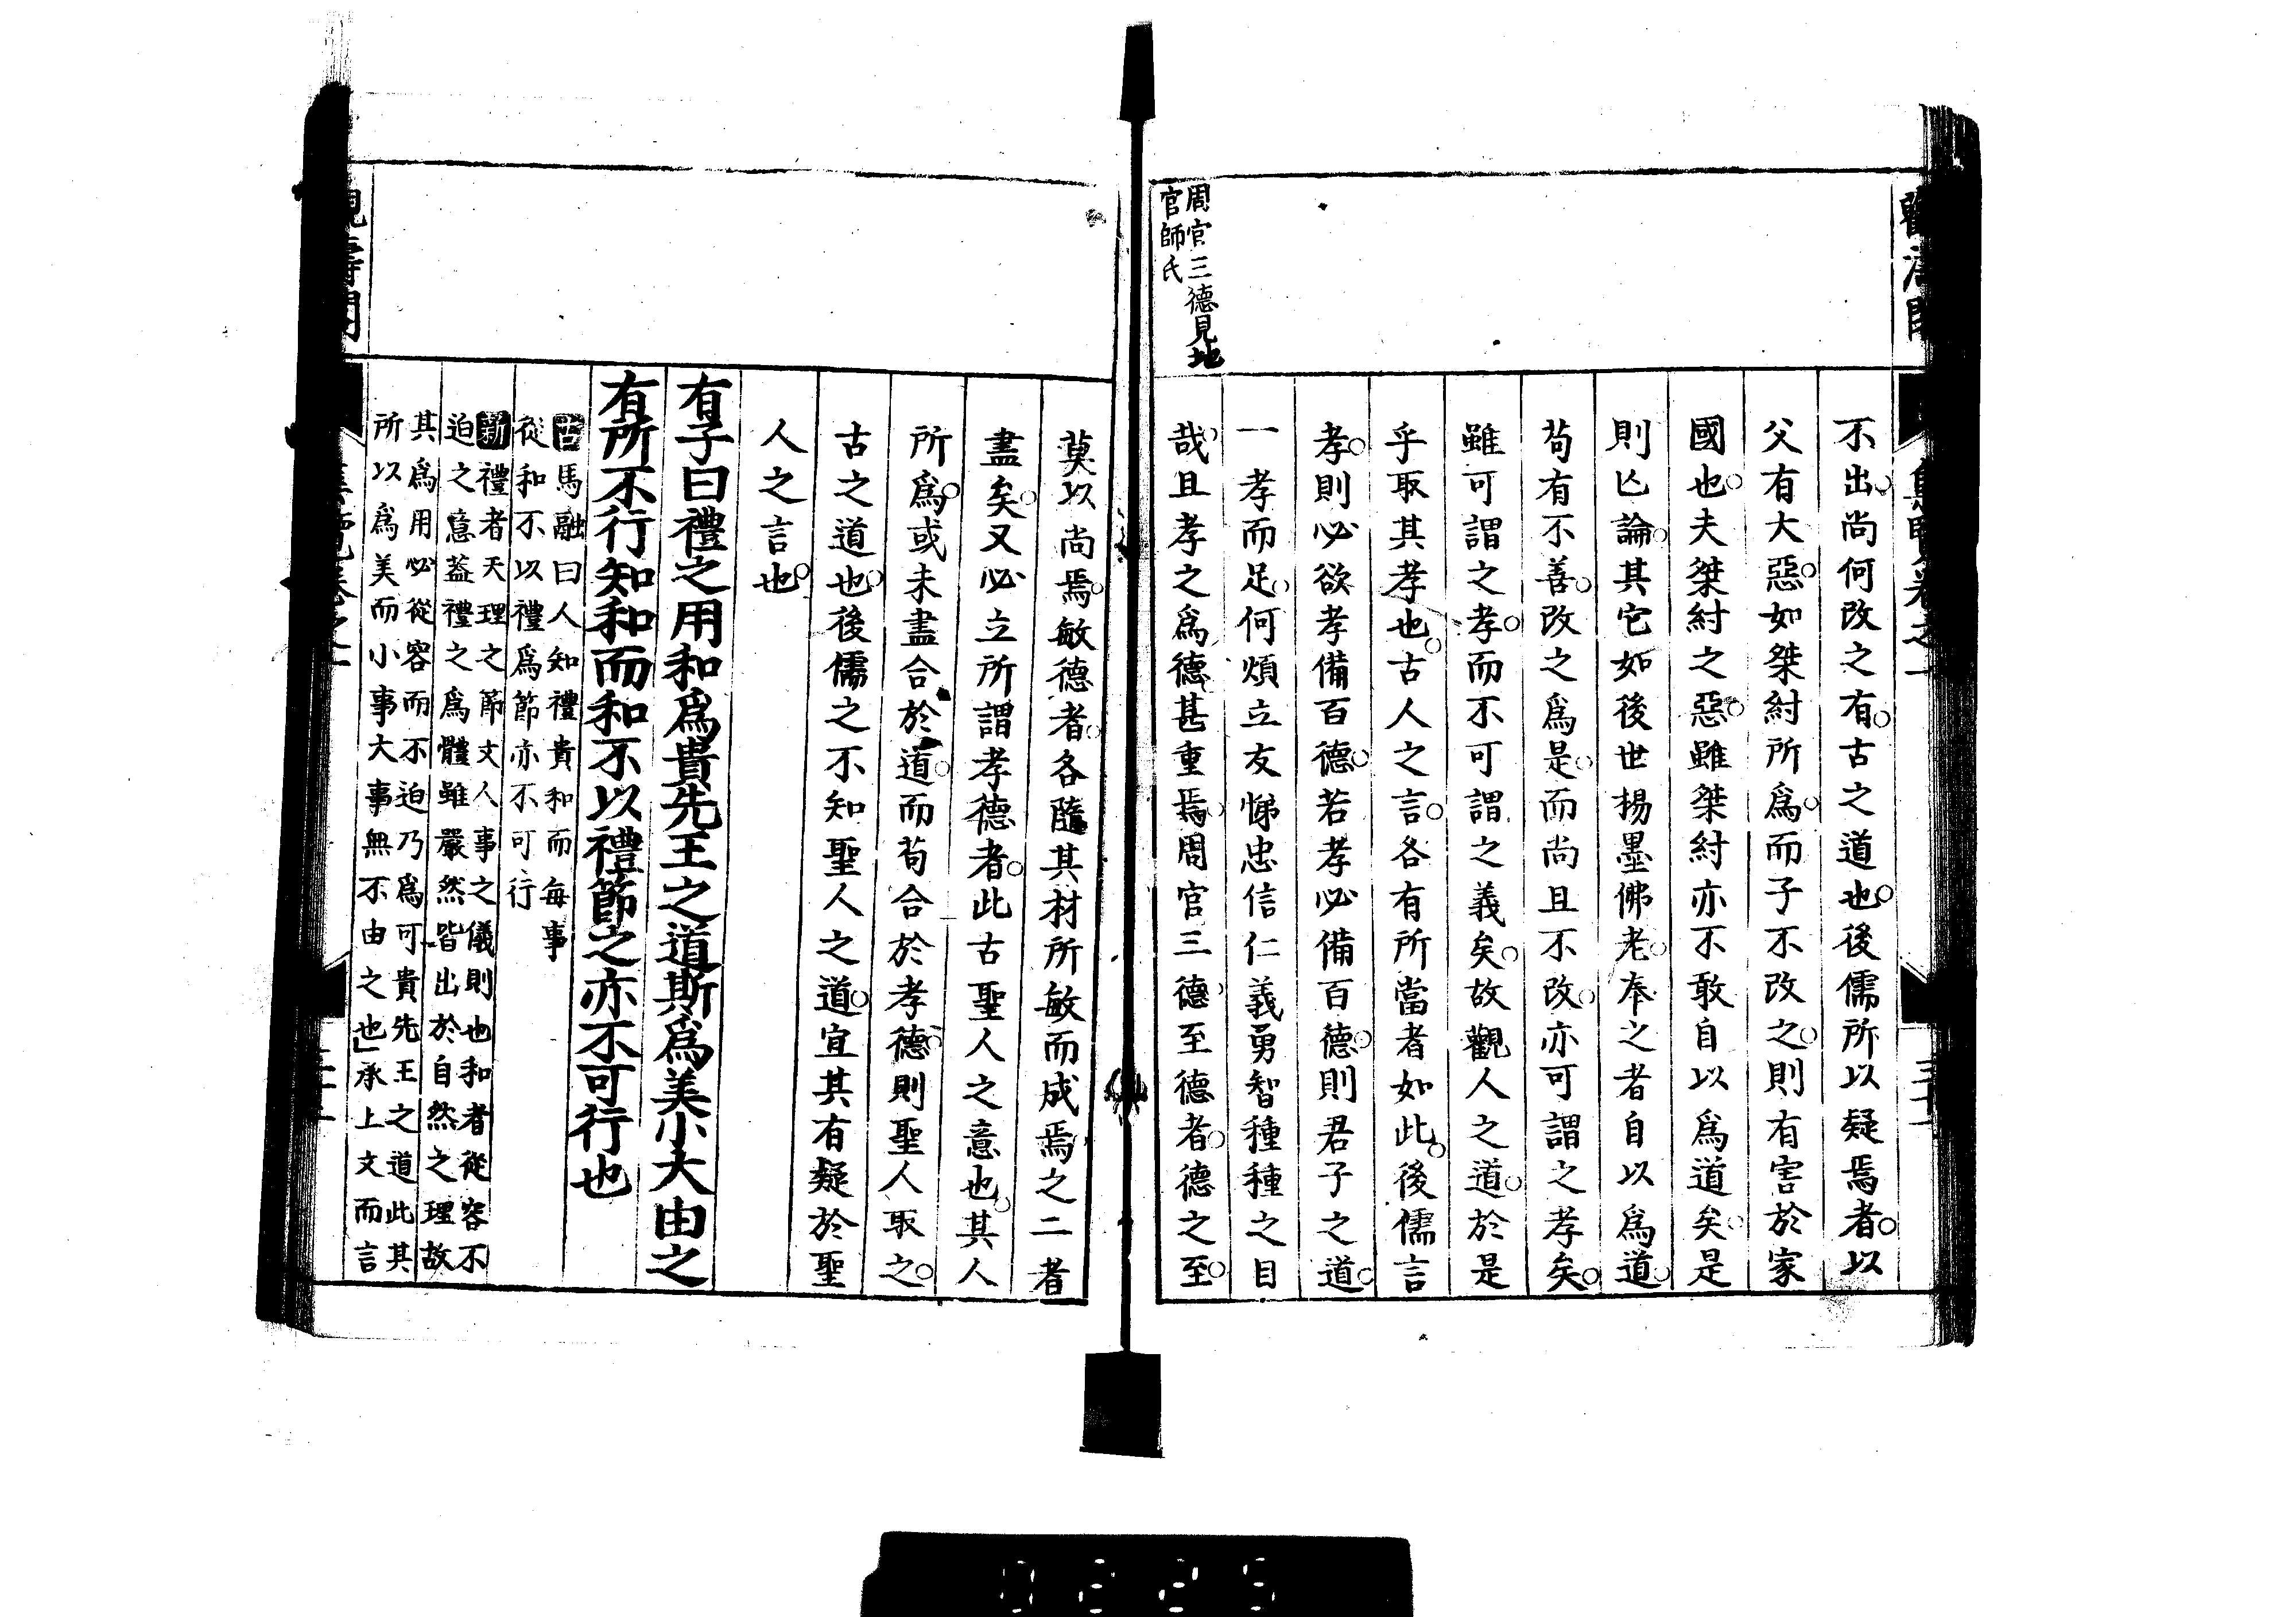 周官三德見地
官師氏
不出尚何改之有古之道也後儒所以疑焉者以
父有大惡如桀紂所爲而子不改之則有害於家
國也夫桀紂之惡雖桀紂亦不敢自以爲道矣是
則亾論其它如後世揚墨佛老奉之者自以爲道
苟有不善改之爲是而尚且不改亦可謂之孝矣
雖可謂之孝而不可謂之義矣故觀人之道於是
乎取其孝也古人之言各有所當者如此後儒言
孝則必欲孝備百德若孝必備百德則君子之道
一孝而足何煩立友悌忠信仁義勇智種種之目
哉且孝之爲德甚重焉周官三德至德者德之至
莫以尚焉敏德者各隨其材所敏而成焉之二者
盡矣又必立所謂孝德者此古聖人之意也其人
所爲或未盡合於道而苟合於孝德則聖人取之
古之道也後儒之不知聖人之道宜其有疑於聖
人之言也
有子曰禮之用和爲貴先王之道斯爲美小大由之
有所不行知和而和不以禮節之亦不可行也
古馬融曰人知禮貴和而每事
從和不以禮爲節亦不可行
新禮者天理之節文人事之儀則也和者從容不
迫之意葢禮之爲體雖嚴然皆出於自然之理故
其爲用必從容而不迫乃爲可貴先王之道此其
所以爲美而小事大事無不由之也」承上文而言